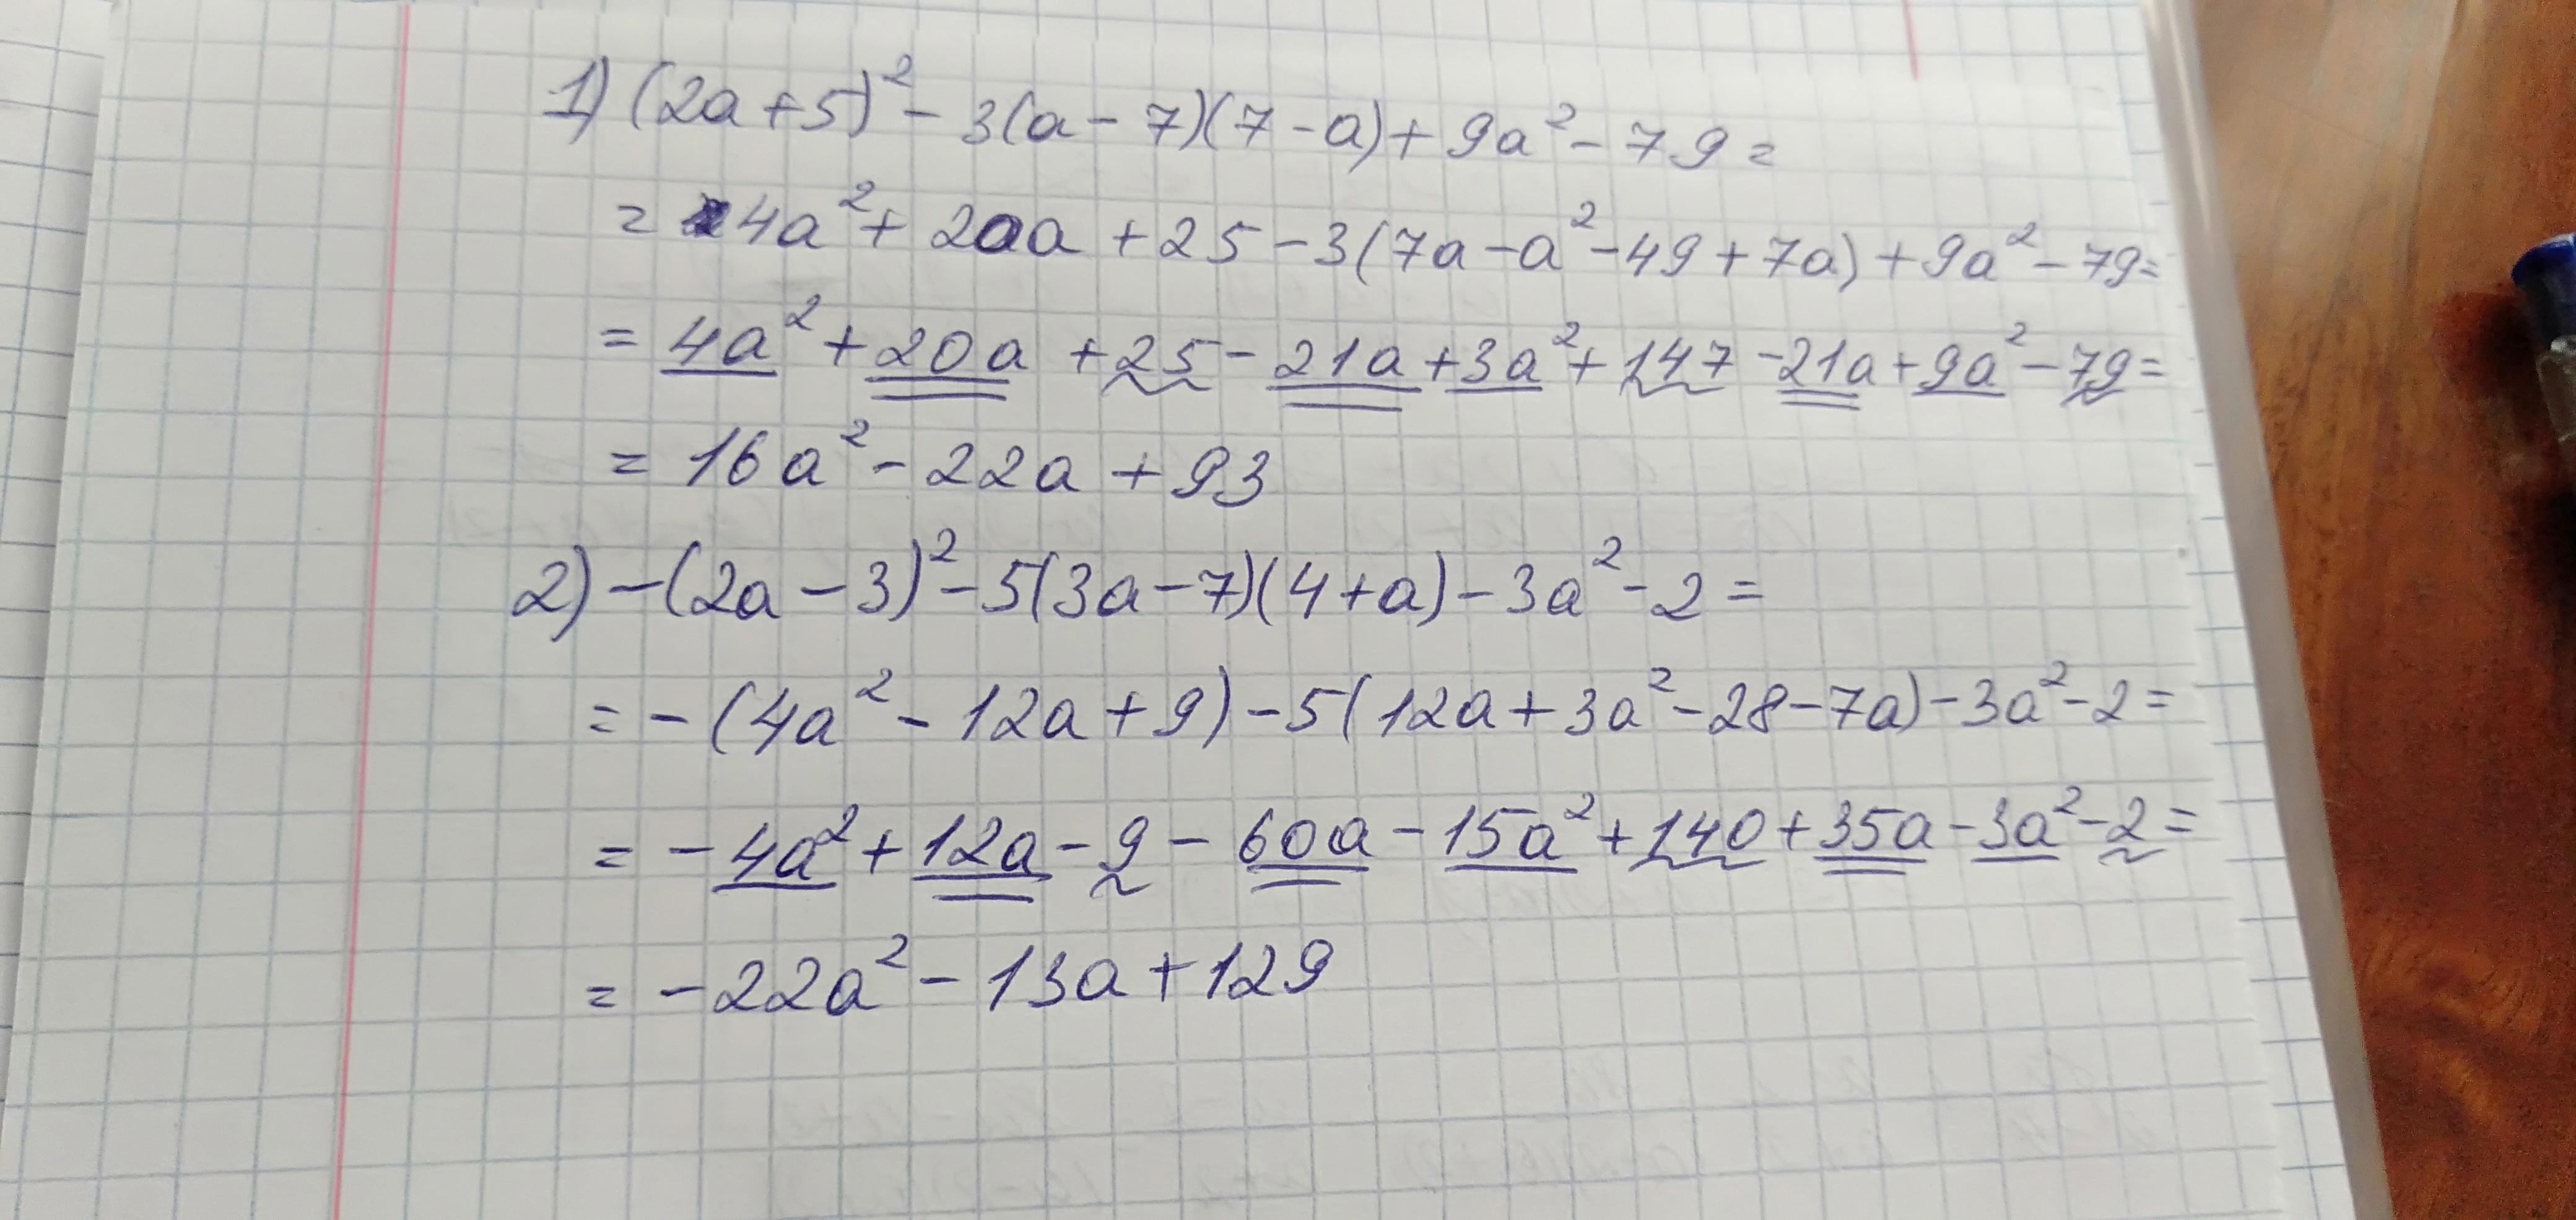 1) (2a+5)² - 3(a - 7)(7 - a) + 9a² - 79 =
= 4a² + 20a + 25 - 3(7a - a² - 49 + 7a) + 9a² - 79 =
= 4a² + 20a + 25 - 21a + 3a² + 147 - 21a + 9a² - 79 =
= 16a² - 22a + 93
2) - (2a - 3)² - 5(3a - 7)(4 + a) - 3a² - 2 =
= - (4a² - 12a + 9) - 5(12a + 3a² - 28 - 7a) - 3a² - 2 =
= - 4a² + 12a - 9 - 60a - 15a² + 140 + 35a - 3a² - 2 =
= - 22a² - 13a + 129